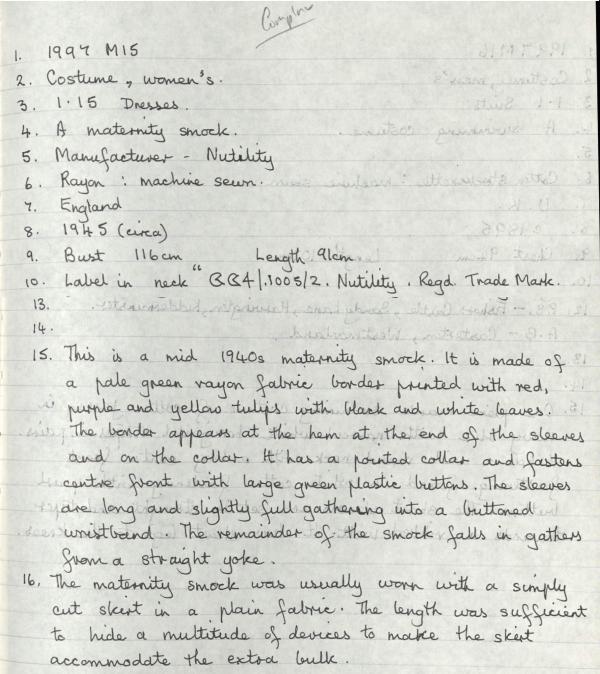 1. 1997 M15
2. Costume, women's.
3. 1.15 Dresses.
4. A maternity smock.
5. Manufacturer - Nutility
6. Rayon : machine sewn.
7. England
8. 1945 (circa)
9. Bust 116cm Length 91cm
10. Label in neck "CC41.1005/2. Nutility. Regd. Trade Mark.
13.
14.
15. This is a mid 1940s maternity smock. It is made of
a pale green rayon fabric border printed with red,
purple and yellow tulips with black and white leaves.
The border appears at the hem at the end of the sleeves
and on the collar. It has a pointed collar and fastens
centre front with large green plastic buttons. The sleeves
are long and slightly full gathering into a buttoned
wristband. The remainder of the smock falls in gathers
from a straight yoke.
16. The maternity smock was usually worn with a simply
cut skirt in a plain fabric. The length was sufficient
to hide a multitude of devices to make the skirt
accommodate the extra bulk.